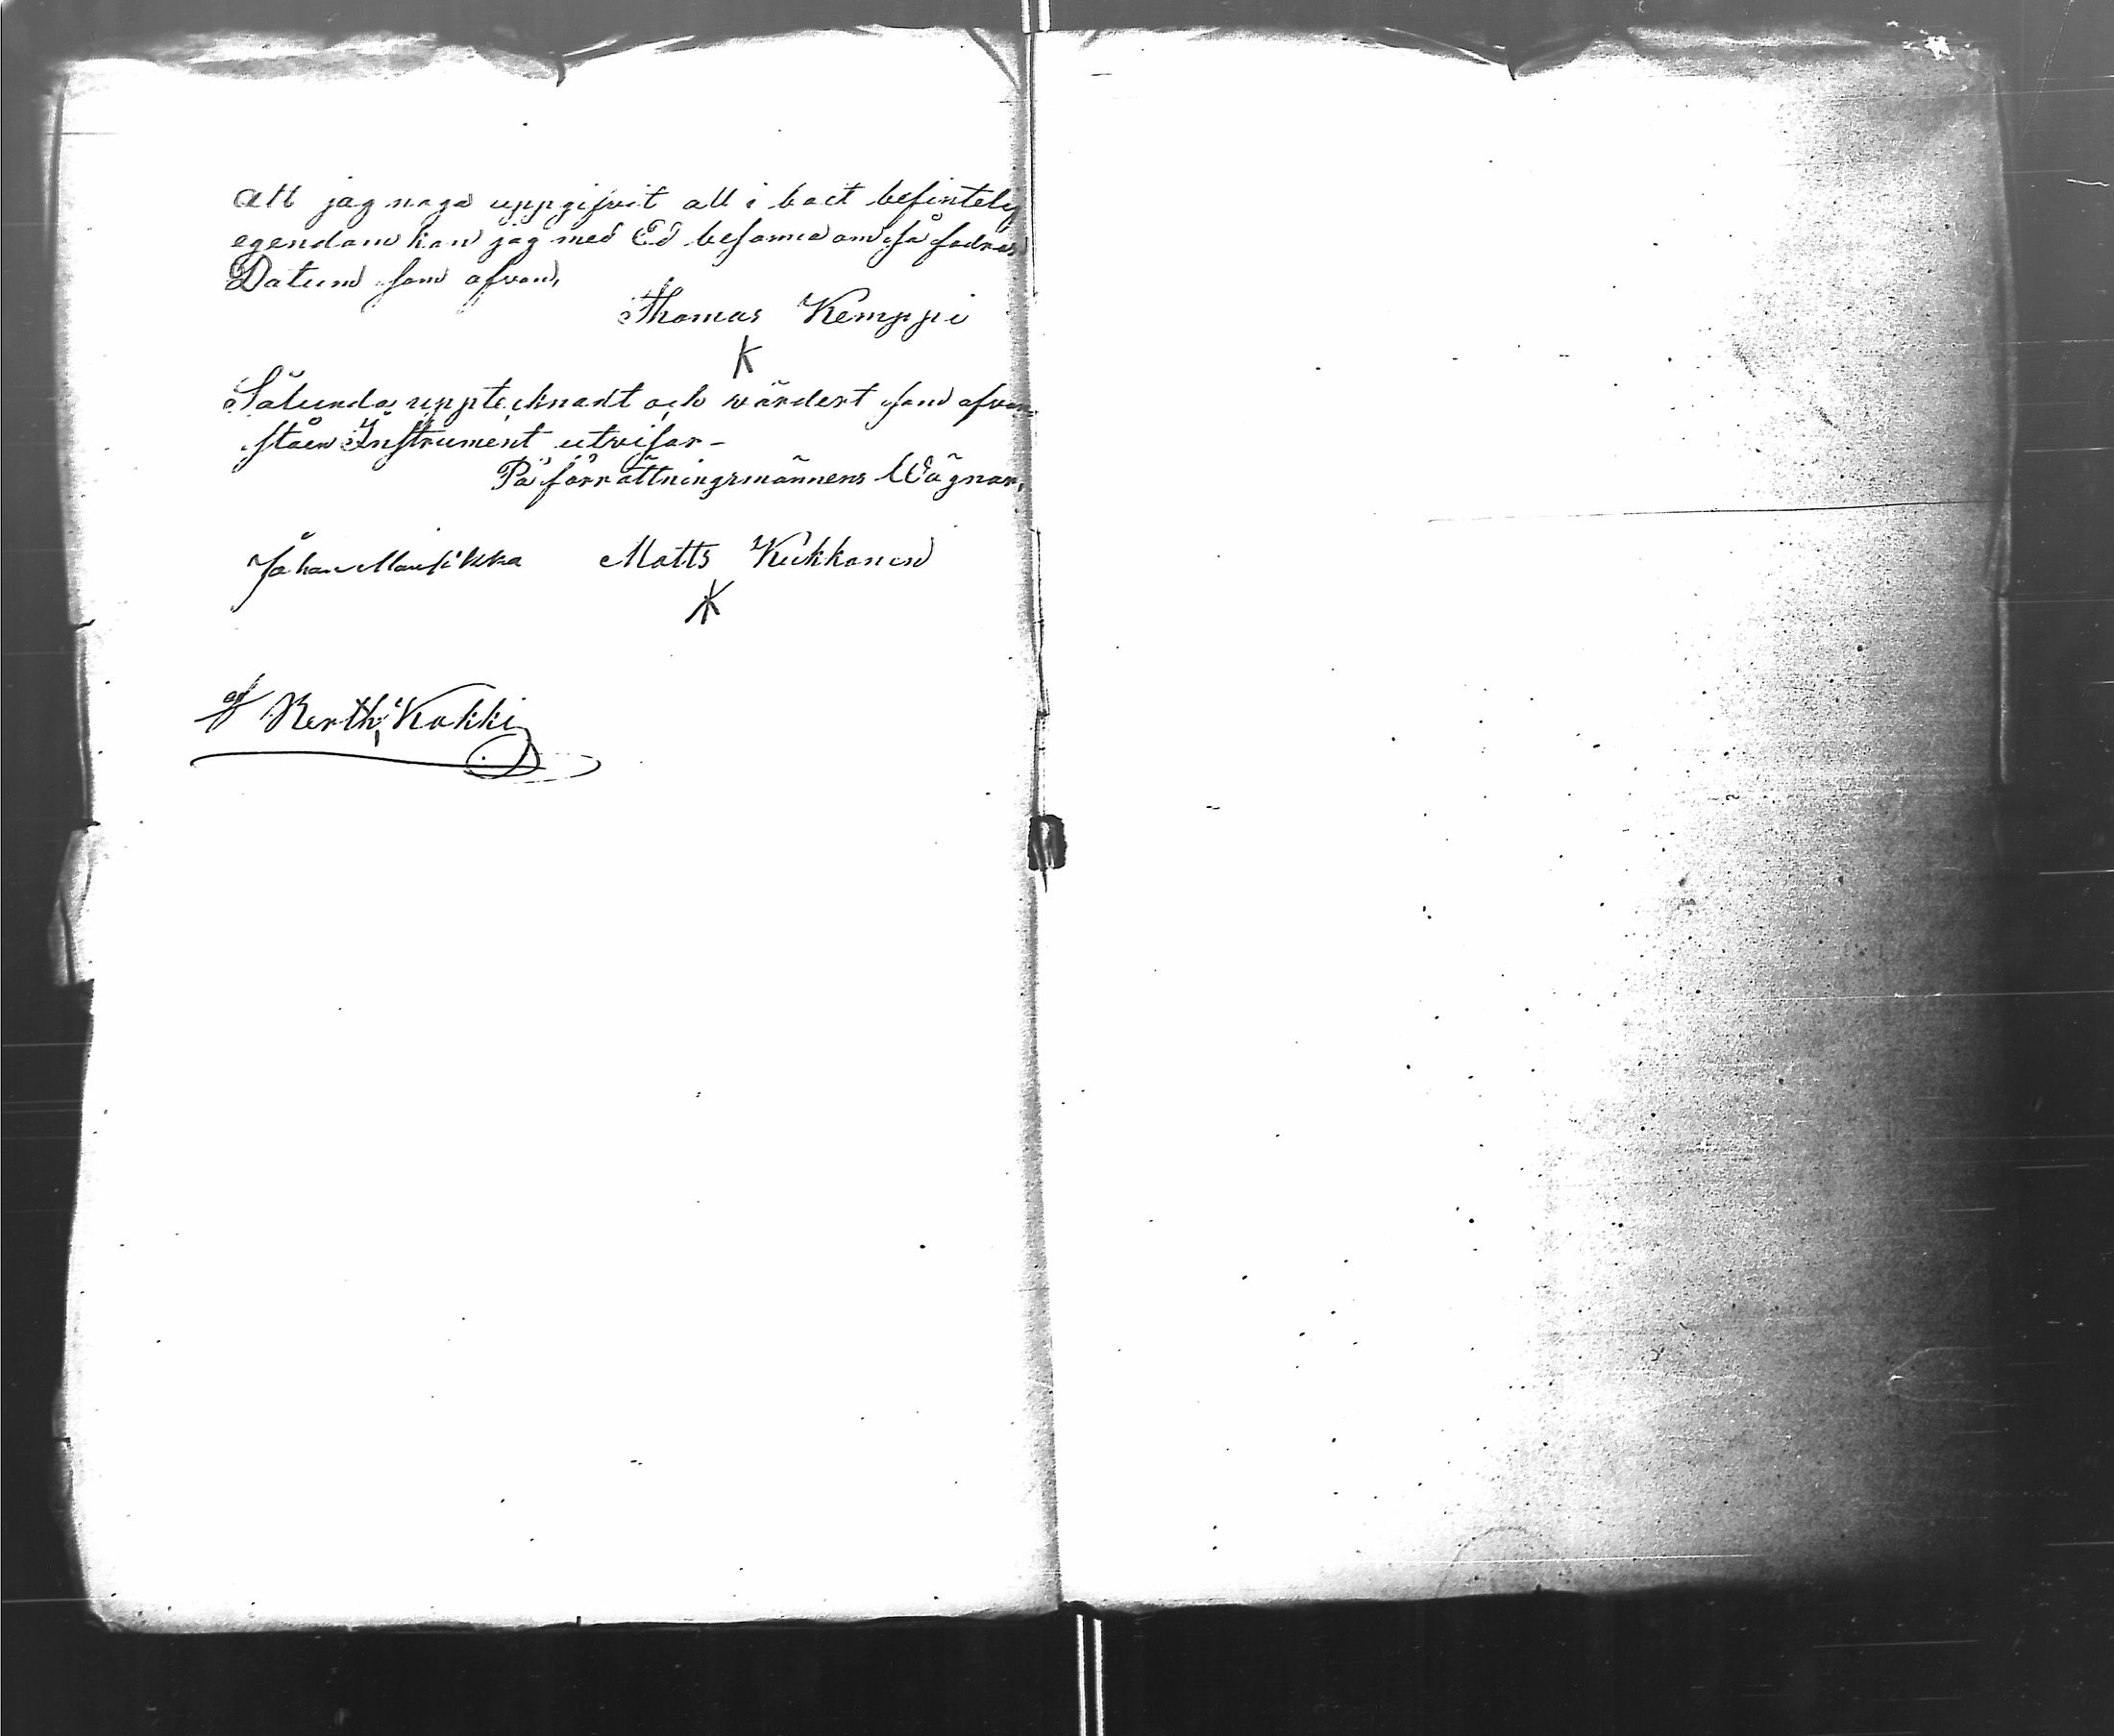 Att jag noga uppgifvit all i boet befintelig
egendom kan jag med Ed besanna om så fodras
Datum som ofvan,
Thomas Kemppi
K
Sålunda upptecknadt och värdert som ofvan
ståen Instrument utvisar-
På förrättningsmännens Wägnar,
Johan Mansikka Matts Kukkonen
K
af Kerth, Kokki